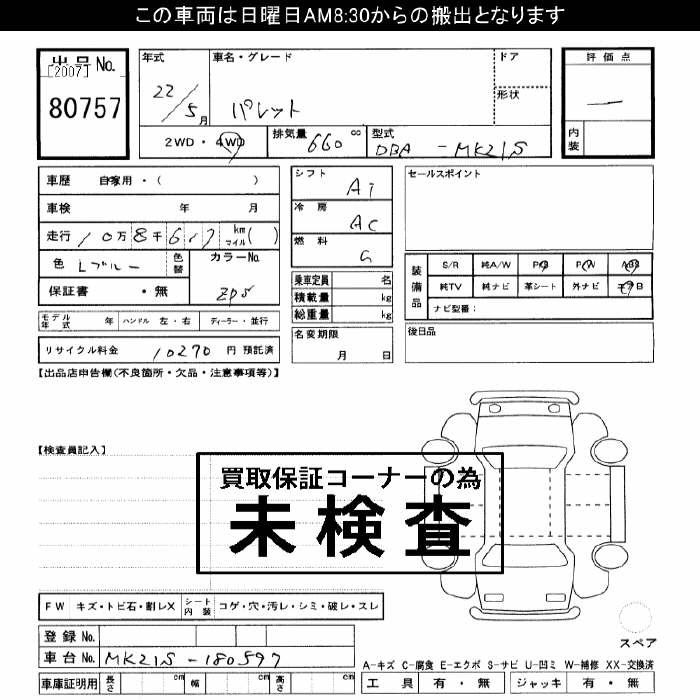 この車両は日曜日AM8:30からの搬出となります
出品No.
[2007]
80757
年式 車名・グレード ドア
22/5月 パレット 形状
2WD・4WD 排気量 660 cc 型式 DBA-MK21S
評価点
内装
車歴 自家用・( )
車検 年 月
走行 10万8千6 km マイル( )
色 Lブルー 色替 カラーNo.
保証書 ・無 ZP5
モデル年式 年 ハンドル 左・右 ディーラー・並行
リサイクル料金 10270 円 預託済
シフト AT
冷房 AC
燃料 G
乗車定員 名
積載量 kg
総重量 kg
名変期限
月 日
セールスポイント
装備品 S/R 純A/W P/S P/W ABS
純TV 純ナビ 革シート 外ナビ エアB
ナビ型番:
後日品
【出品店申告欄(不良箇所・欠品・注意事項等)】
【検査員記入】
買取保証コーナーの為
未検査
FW キズ・トビ石・割レX シート内装 コゲ・穴・汚レ・シミ・破レ・スレ
スペア
登録No.
車台No. MK21S-180597
車庫証明用 長さ cm 幅 cm 高さ cm
A-キズ C-腐食 E-エクボ S-サビ U-凹ミ W-補修 XX-交換済
工具 有・無 ジャッキ 有・無